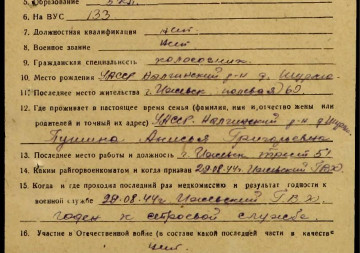 5. Образование 3 кл.
6. На ВУС 133
7. Должностная квалификация нет
8. Военное звание нет
9. Гражданская специальность колхозник
10. Место рождения УАССР. Нылгинский р-н д.
11. Последнее место жительства г. Ижевск, полевая 60
12. Где проживает в настоящее время семья (фамилия, имя и отчество жены или
родителей и точный их адрес) УАССР. Нылгинский р-н д
Пушина Анисья Григорьевна
13. Последнее место работы и должность г. Ижевск трест 51
14. Каким райгорвоенкоматом и когда призван 29.08.44г. Ижевский Г.В.К.
15. Когда и где проходил последний раз медкомиссию и результат годности к
военной службе 29.08.44г Ижевский Г.В.К.
годен к строевой службе.
16. Участие в Отечественной войне (в составе какой последней части и в качестве
нет.